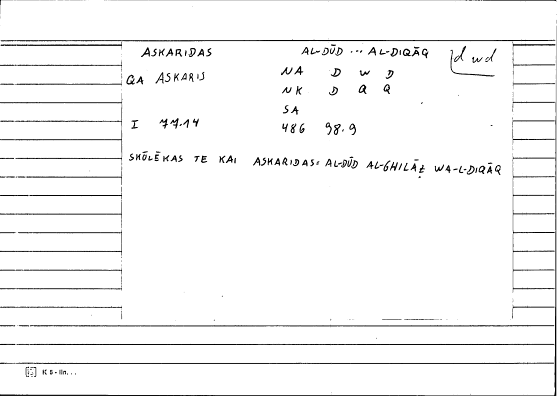 ASKARIDAS AL-DŪD ... AL-DIQĀQ d wd
QA ASKARIS NA D W D
NK D Q Q
SA
I 77.14 486 98.9
SKŌLĒKAS TE KAI ASKARIDAS = AL-DŪD AL-GHILĀẒ WA-L-DIQĀQ